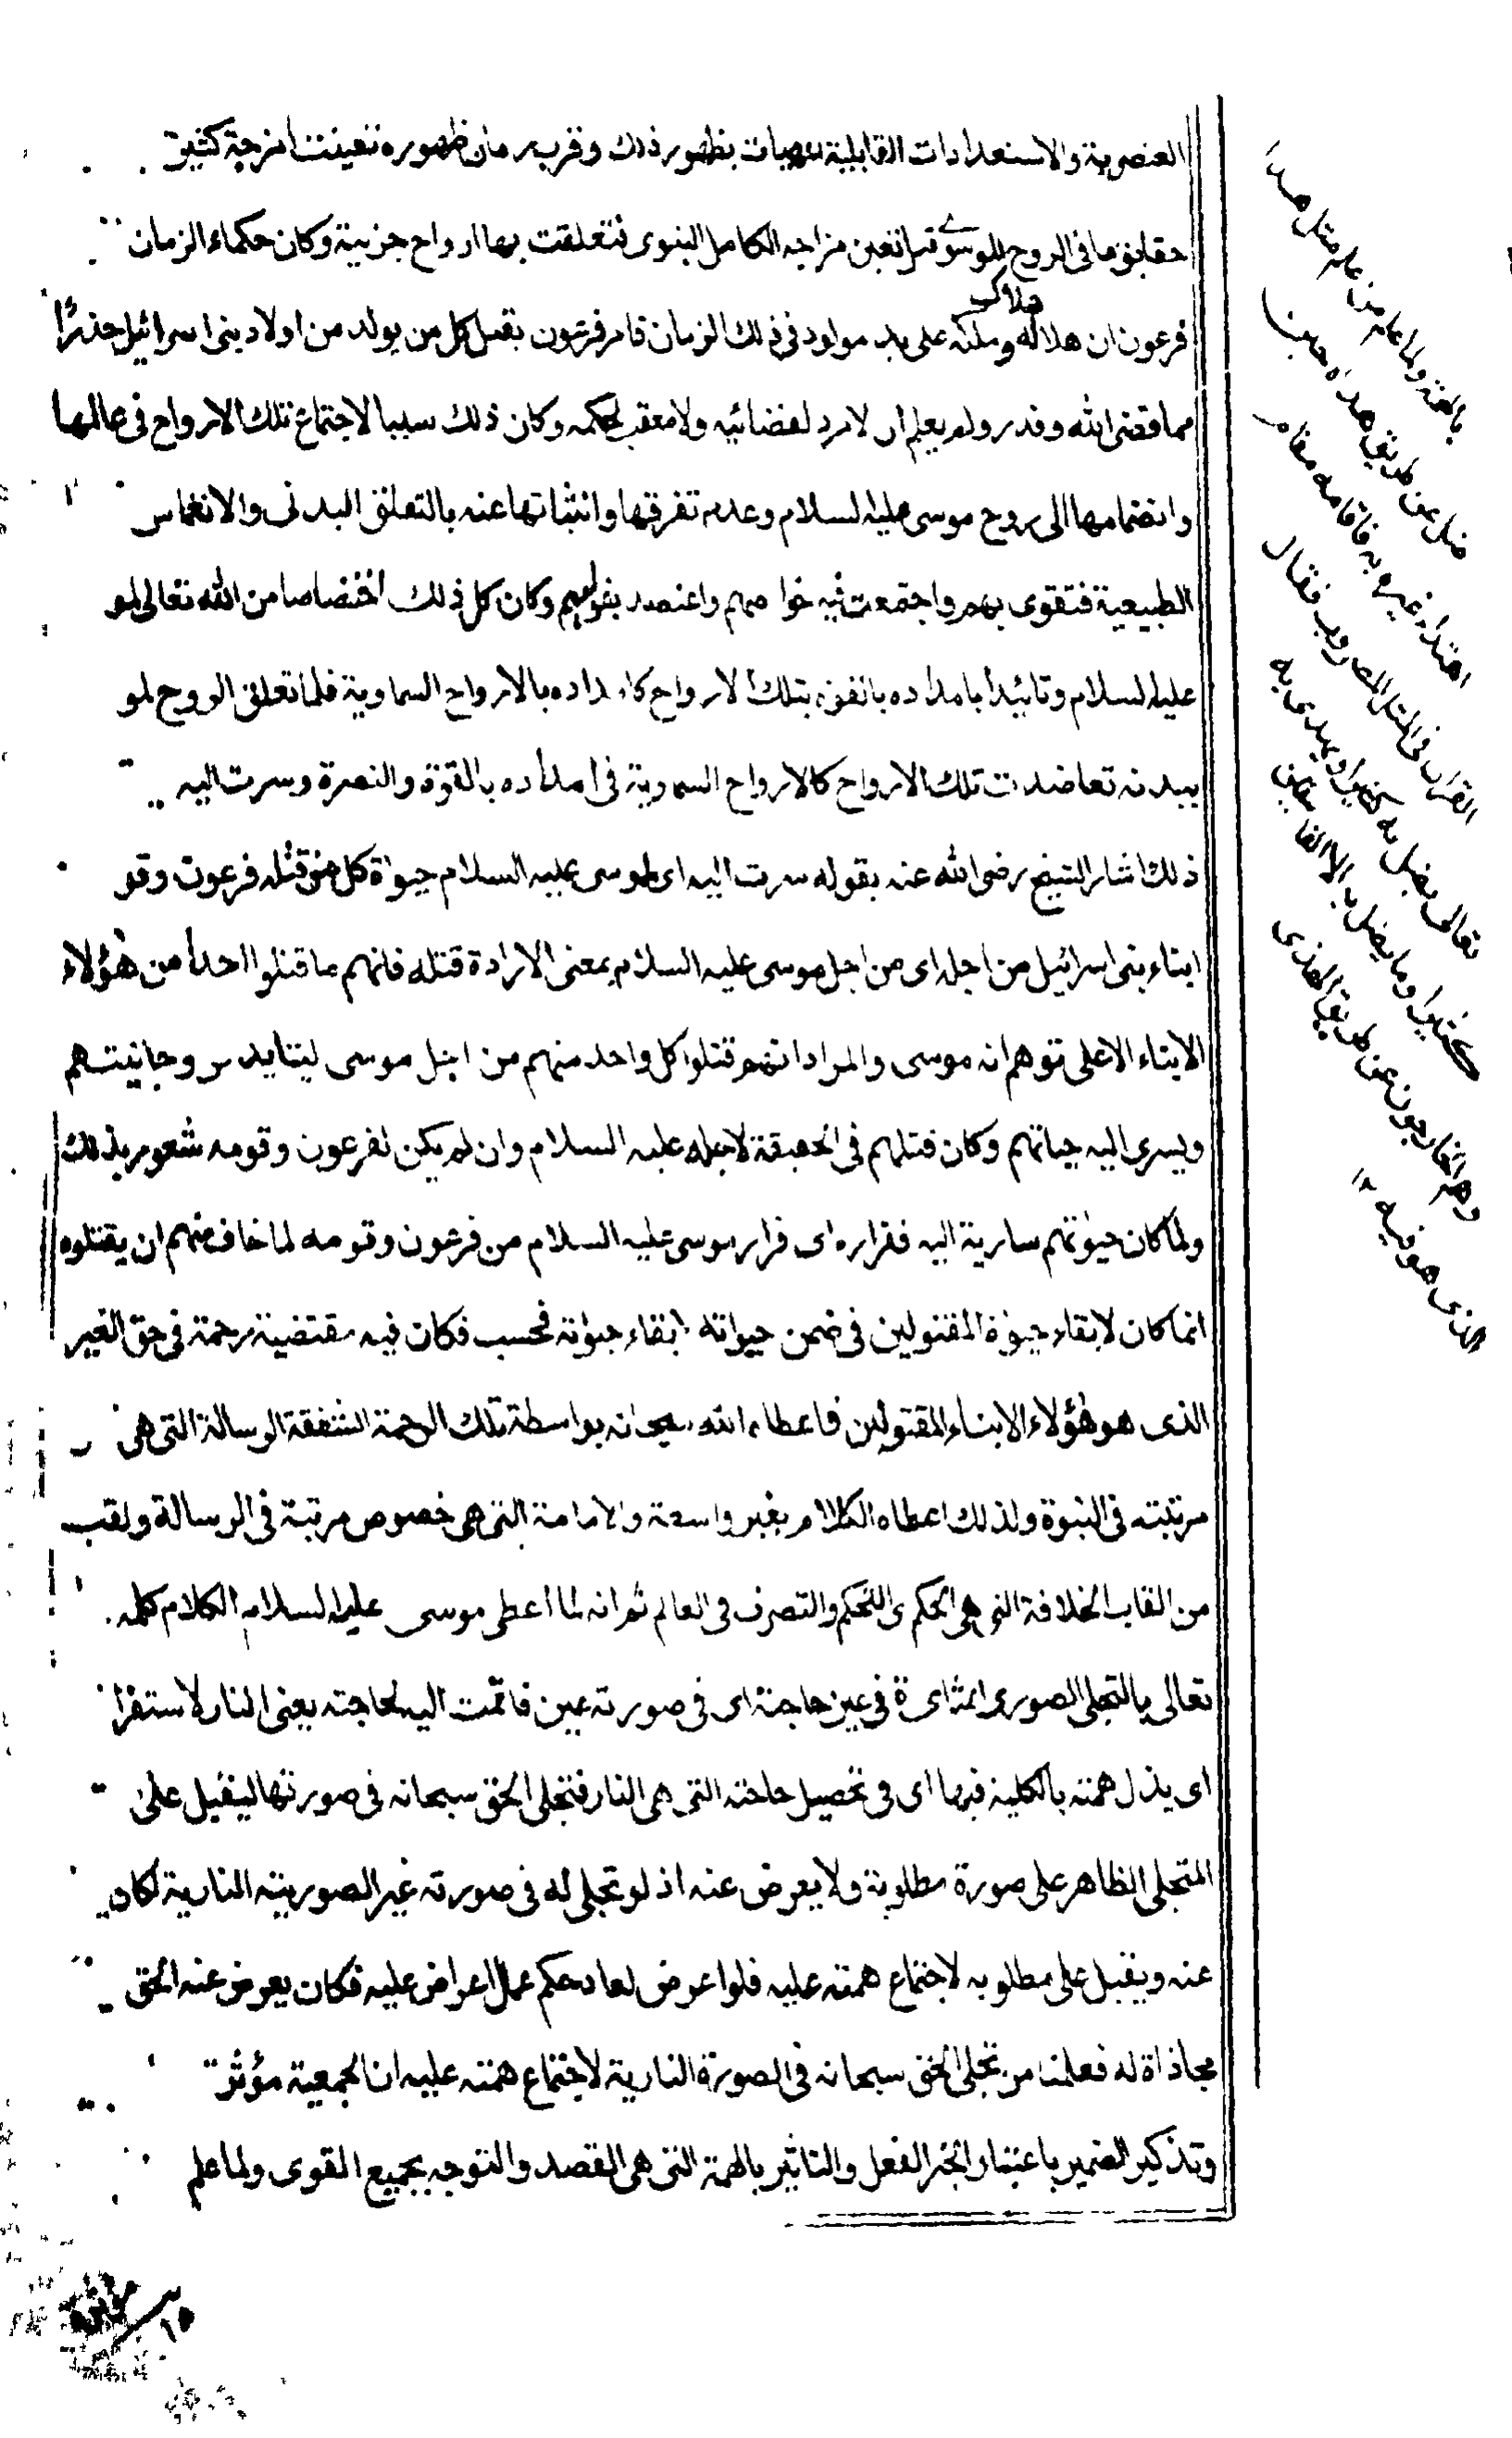 العنصرية والاستعدادات القابلية بظهور ذلك وقرب زمان ظهوره تعينت امزجة كثيرة
حقايق ما فى الروح الموسوى قبل تعين مزاجه الكامل النبوى فتعلقت بها ارواح جزيية وكان حكماء الزمان
فرعون ان هلاكه وملكه على يد مولود فى ذلك الزمان فامر فرعون بقتل كل من يولد من اولاد بنى اسرائيل حذرًا
هلاك
مما قضى الله وقدر ولم يعلم ان لا مرد لقضائيه ولا معقب لحكمه وكان ذلك سببا لاجتماع تلك الارواح فى عالمها
وانضمامها الى روح موسى عليه السلام وعدم تفرقها وانبثاثها عنه بالتعلق البدنى والانغماس
الطبيعية فتقوى بهم واجتمعت فيه خواصهم واعتضد بقولهم وكان كل ذلك اختصاصا من الله تعالى لمو
عليه السلام وتائيدا بامداده بتلك الارواح كامداده بالارواح السماوية فلما تعلق الروح لمو
ببدنه تعاضدت تلك الارواح كالارواح السماوية فى امداده بالقوة والنصرة وسرت اليه
ذلك اشار الشيخ رضى الله عنه بقوله سرت اليه اى لموسى عليه السلام حيوة كل من قتله فرعون وقو
ابناء بنى اسرائيل من اجله اى من اجل موسى عليه السلام بمعنى الارادة قتله فانهم ما قتلوا احدا من هؤلاء
الابناء الا على توهم انه موسى والمراد انهم قتلوا كل واحد منهم من اجل موسى ليتايد بروحانيتهم
ويسرى اليه حياتهم وكان قتلهم فى الحقيقة لاجله عليه السلام وان لم يكن لفرعون وقومه شعور بذلك
ولما كان حيوتهم سارية اليه ففراره اى فرار موسى عليه السلام من فرعون وقومه لما خاف منهم ان يقتلوه
انما كان لابقاء حيوة المقتولين فى ضمن حيوته ابقاء حيوته فحسب فكان فيه مقتضية رحمة فى حق الغير
الذى هو هؤلاء الابناء المقتولين فاعطاه الله سبحانه بواسطة تلك الرحمة الشفقة الرسالة التى هى
مرتبته فى النبوة ولذلك اعطاه الكلام بغير واسعة والامامة التى هى خصوص مرتبة فى الرسالة ولقب
من القاب الخلافة التى هى الحكم اى التحكم والتصرف فى العالم ثم انه لما اعطى موسى عليه السلام الكلام كلمه
تعالى بالتجلى الصورى فى عين حاجته اى فى صورته عين فاتمت اليه لحاجته يعنى النار لاستفرا
اى يذل همته بالكلية فيها اى فى تحصيل حاجته التى هى النار فتجلى الحق سبحانه فى صورتها ليقبل على
المتجلى الظاهر على صورة مطلوبة ولا يعرض عنه اذ لو تجلى له فى صورته غير الصوريته النارية لكان
عنه ويقبل على مطلوبه لاجتماع همته عليه فلو اعرض لعاد حكم عمل اعراض عليه فكان يعرض عنه الحق
مجاذاة له فعلمنا من تجلى الحق سبحانه فى الصورة النارية لاجتماع همته عليه ان الجمعية مؤثرة
وتذكير الضمير باعتبار الفعل والتاثير بالهمة التى هى القصد والتوجه بجميع القوى ولما علم
اهتداء غيره به فاقامه مقام
القران فى المثل المضروب فقال
تعالى يضل به كثيرا ويهدى به
كثيرا وما يضل به الا الفاسقين
وهم الخارجون عن طريق الهدى
الذى هو فيه ١٢